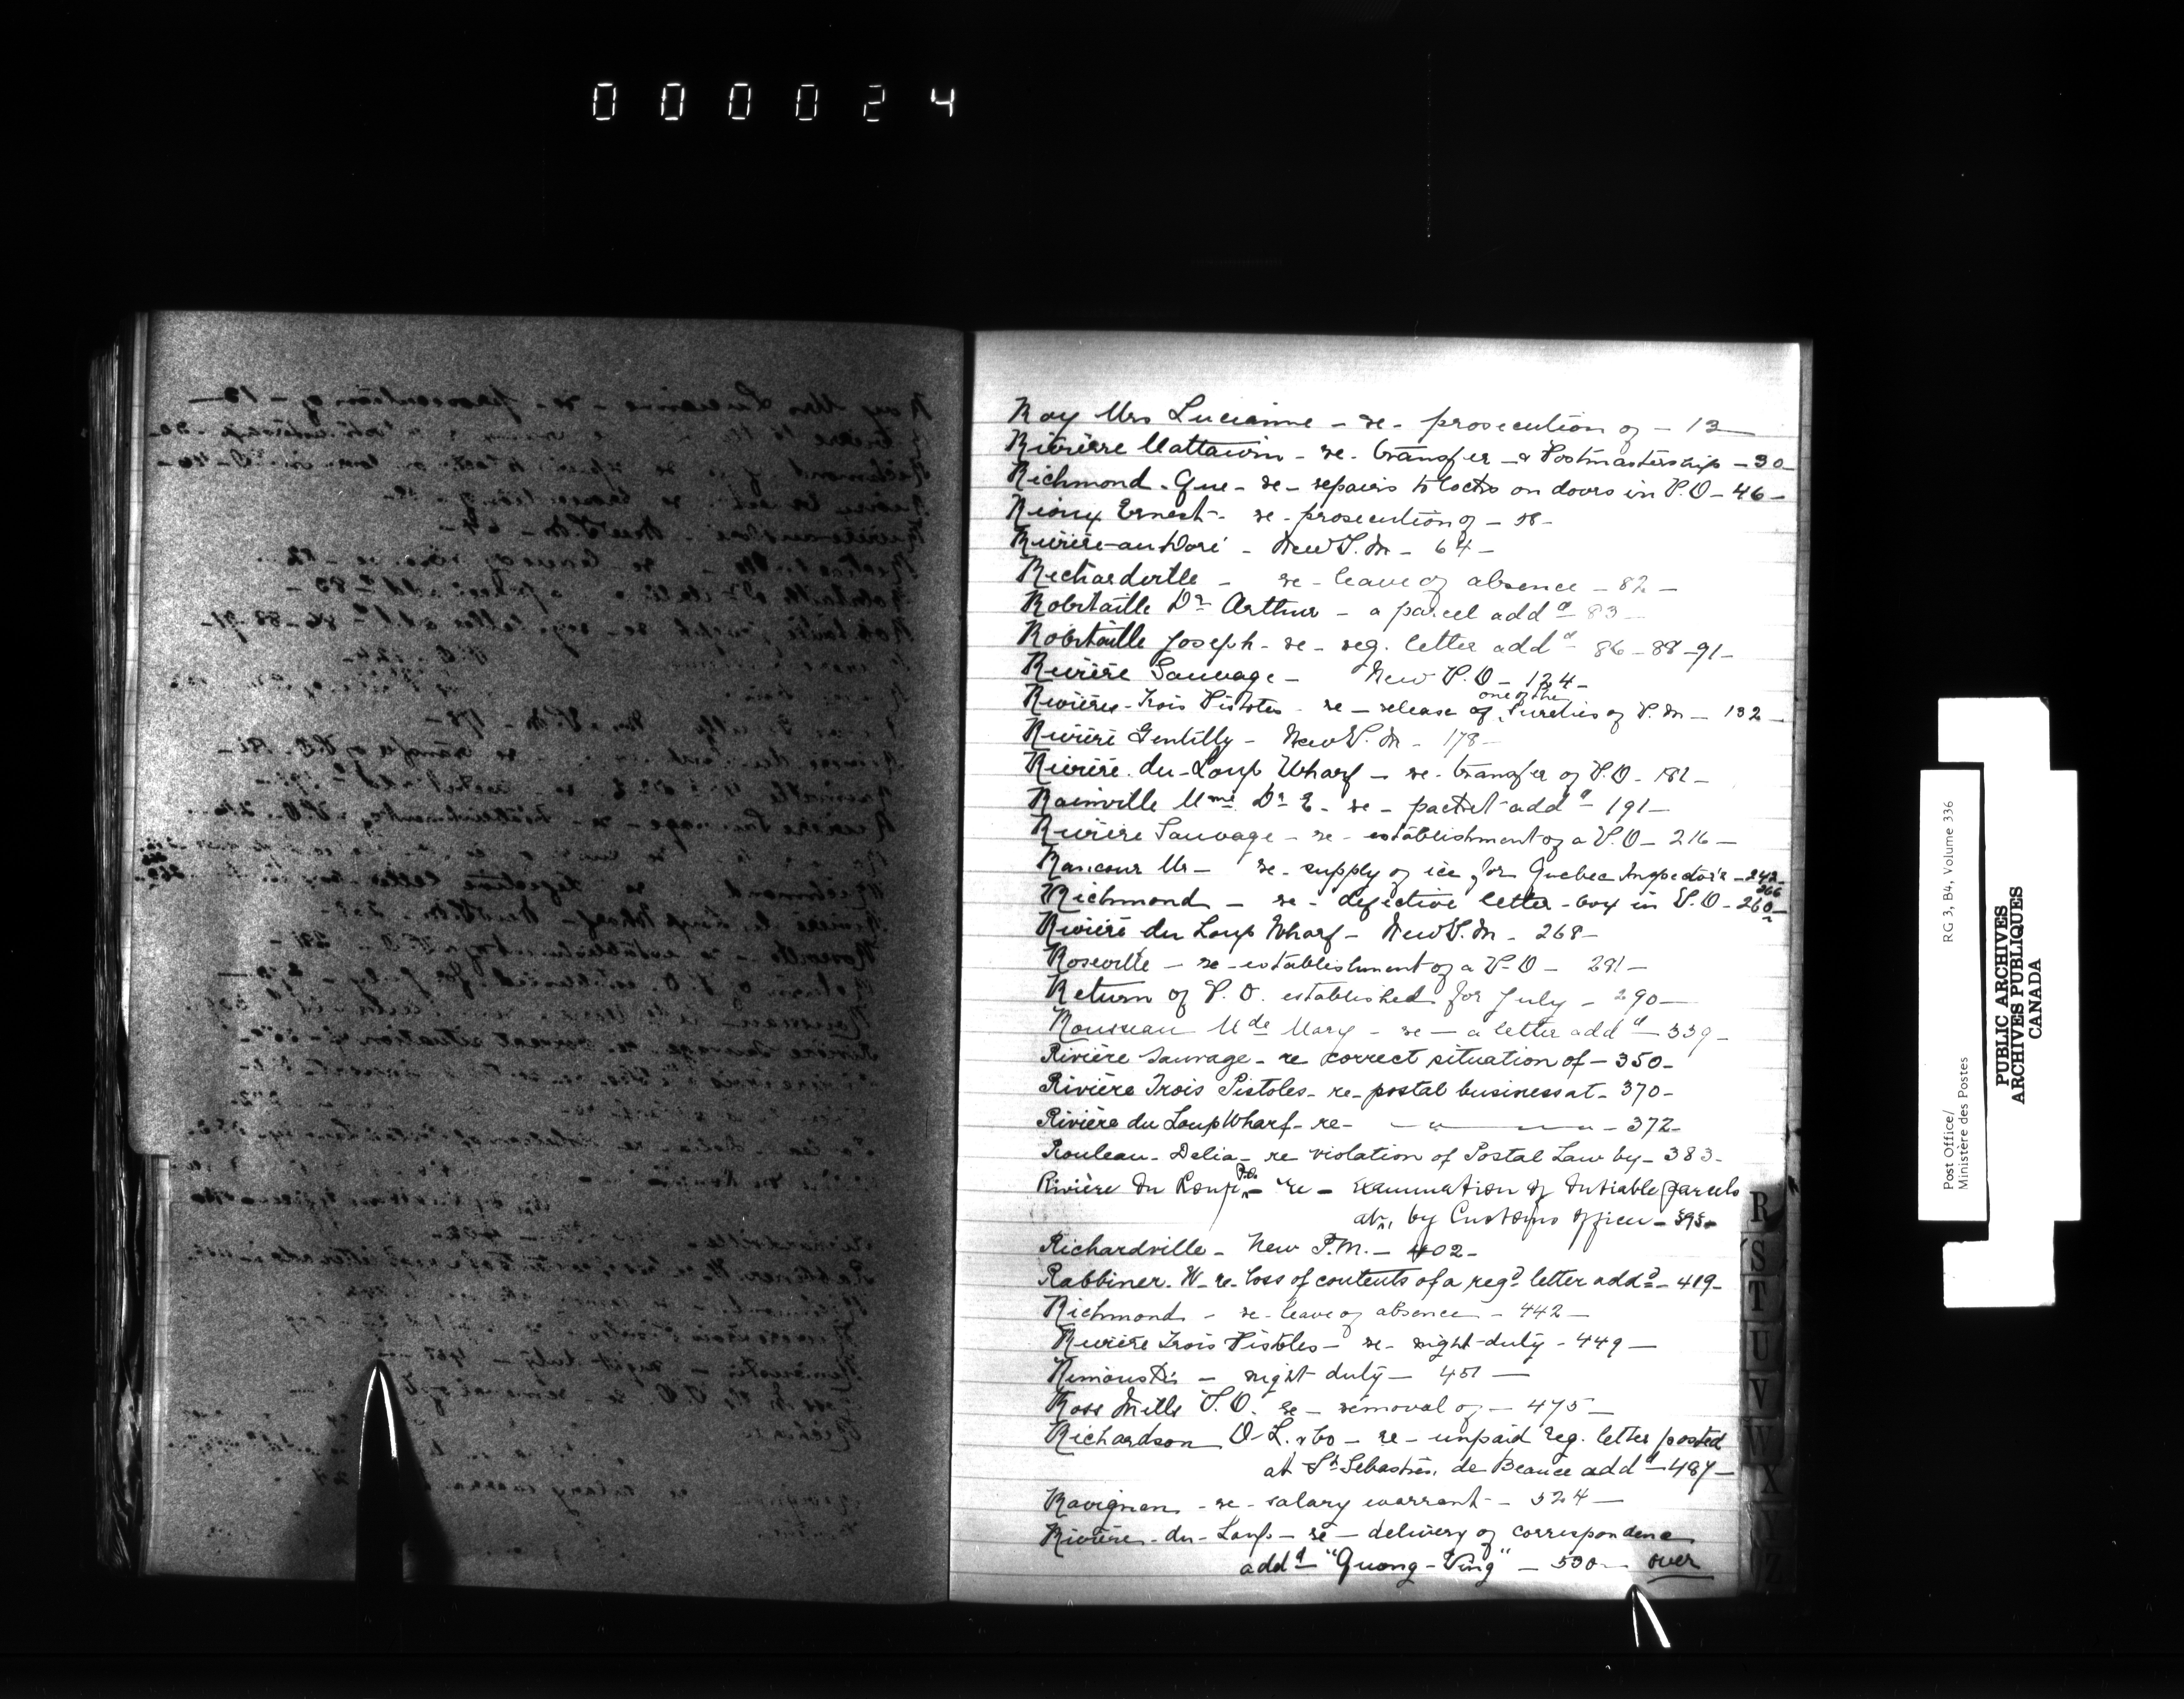 000024
Roy Mrs Lucienne - re - prosecution of - 13
Rivière Mattawin - re - transfer & Postmastership - 30
Richmond - Que - re - repairs to locks on doors in P.O - 46 -
Rioux Ernest - re - prosecution of - 58 -
Rivière-au-Doré - New P.M - 64 -
Richardville - re - leave of absence - 82 -
Robitaille Dr Arthur - a parcel addd - 83 -
Robitaille Joseph - re - reg. letter addd - 86 - 88 - 91 -
Rivière Sauvage - New P.O - 124 -
Rivière-Trois Pistoles - re - release of one of the Sureties of P.M - 132 -
Rivière Gentilly - New P.M - 178 -
Rivière-du-Loup Wharf - re - transfer of P.O - 182 -
Rainville Mme Dr E - re - packet addd - 191 -
Rivière Sauvage - re - establishment of a P.O - 216 -
Rancour Mr - re - supply of ice for Quebec Inspector's - 242 -
266
Richmond - re - defective letter-box in P.O - 260 -
Rivière du Loup Wharf - New P.M - 268 -
Roseville - re - establishment of a P.O - 281 -
Return of P.O. established for July - 290 -
Rousseau Mde Mary - re - a letter addd - 339 -
Rivière Sauvage - re correct situation of - 350 -
Rivière Trois Pistoles - re - postal business at - 370 -
Rivière du Loup Wharf - re - - " - - 372 -
Rouleau - Delia - re violation of Postal Law by - 383 -
Rivière du Loup - re - Examination of dutiable parcels
at, by Customs officer - 395 -
Richardville - New P.M. - 402 -
Rabbiner. W - re - loss of contents of a regd letter addd - 419 -
Richmond - re - leave of absence - 442 -
Rivière Trois Pistoles - re - night-duty - 449 -
Rimouski - night-duty - 451 -
Ross Mills P.O. re - removal of - 475 -
Richardson O. L. & Co - re - unpaid reg. letter posted
at St Sebastien de Beauce addd - 487 -
Ravignan - re - salary warrant - 524 -
Rivière-du-Loup - re - delivery of correspondence
addd "Quong-Ving" - 530 - over
R
S
T
U
V
W
X
Y
Z
Post Office/
Ministère des Postes
RG 3, B4, Volume 336
PUBLIC ARCHIVES
ARCHIVES PUBLIQUES
CANADA